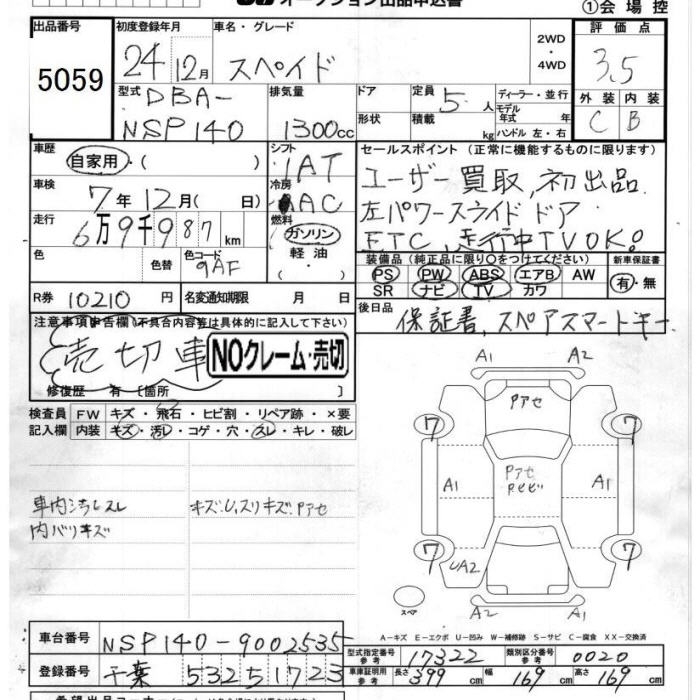 オークション出品申込書
①会場控
出品番号 初度登録年月 車名・グレード 2WD・4WD 評価点
5059 24 12月 スペイド 3.5
型式 DBA-NSP140 排気量 1300cc ドア 定員 5人 ディーラー・並行 外装 内装
形状 積載 kg モデル年式 年 ハンドル 左・右 C B
車歴 自家用・( ) シフト 1AT セールスポイント (正常に機能するものに限ります)
車検 7年12月( 日) 冷房 AAC ユーザー買取,初出品
走行 6万9千987km 燃料 ガソリン・軽油・ 左パワースライドドア
色 色替 色コード 9AF ETC,走行中TVOK!
装備品 (純正品に限り○をつけてください) 新車保証書
PS PW ABS エアB AW 有・無
SR ナビ TV カワ
R券 10210円 名変通知期限 月 日
後日品 保証書,スペアスマートキー
注意事項申告欄(不具合内容等は具体的に記入して下さい)
売切車 NOクレーム・売切
修復歴 有 [箇所 ]
検査員 FW キズ・飛石・ヒビ割・リペア跡・×要
記入欄 内装 キズ・汚レ・コゲ・穴・スレ・キレ・破レ
車内汚れスレ キズ・U,スリキズ・Pアセ
内バリキズ
A1 A2
Pアセ
7 7
A1 Pアセ A1
7 7
UA2
スペア A2 A1
A-キズ E-エクボ U-凹み W-補修跡 S-サビ C-腐食 XX-交換済
車台番号 NSP140-9002535
型式指定番号 参考 17322 類別区分番号 参考 0020
登録番号 千葉 532 51723
車庫証明用 参考 長さ 399cm 幅 169cm 高さ 169cm